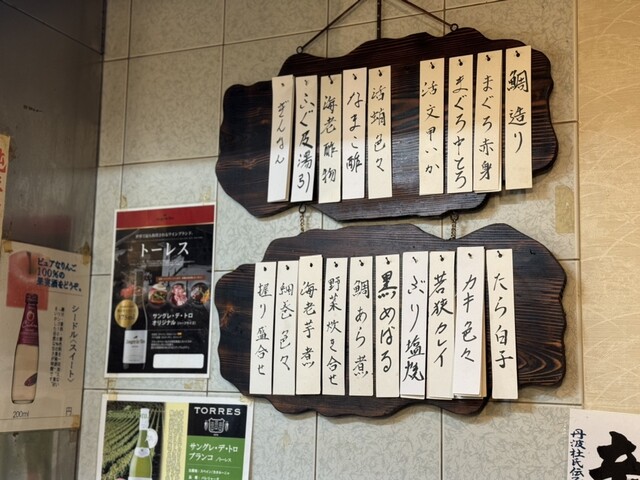 鯛造り
まぐろ赤身
まぐろ中とろ
活文甲いか
活蛸色々
なまこ酢
海老酢物
ふぐ皮湯引
ぎんなん
たら白子
カキ色々
若狭カレイ
ぶり塩焼
黒めばる
鯛あら煮
野菜炊き合せ
海老芋煮
鯛巻色々
握り盛合せ
トーレス
サングレ・デ・トロ
オリジナル
ピュアなりんご
100%の
果実酒をどうぞ。
シードル〈スイート〉
200ml
円
TORRES
サングレ・デ・トロ
ブランコ
丹波杜氏伝